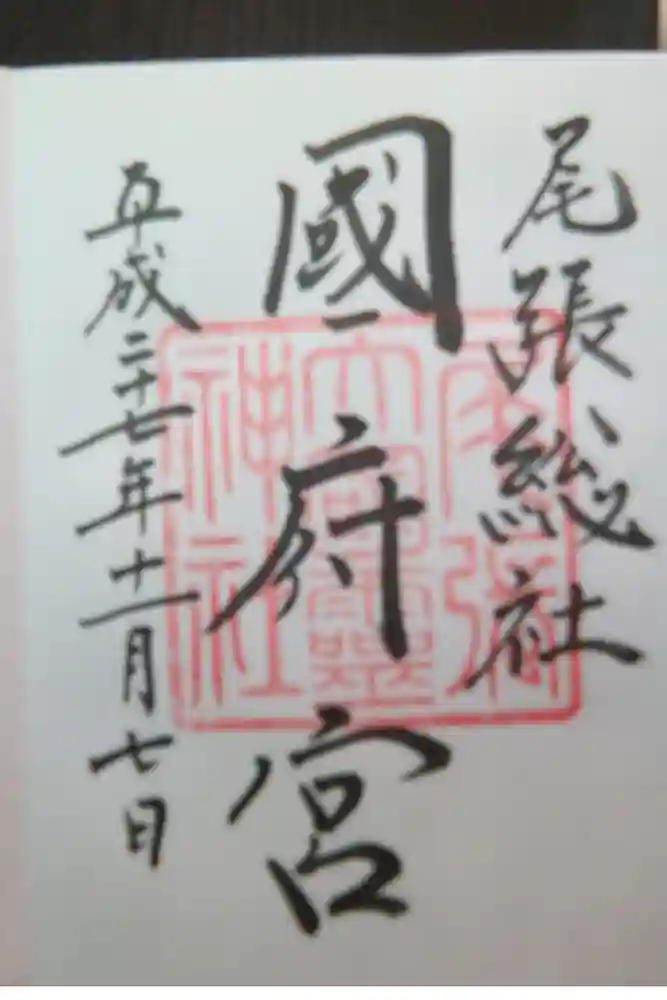 尾張総社
國府宮
平成二十七年十一月七日
尾張
大國霊
神社